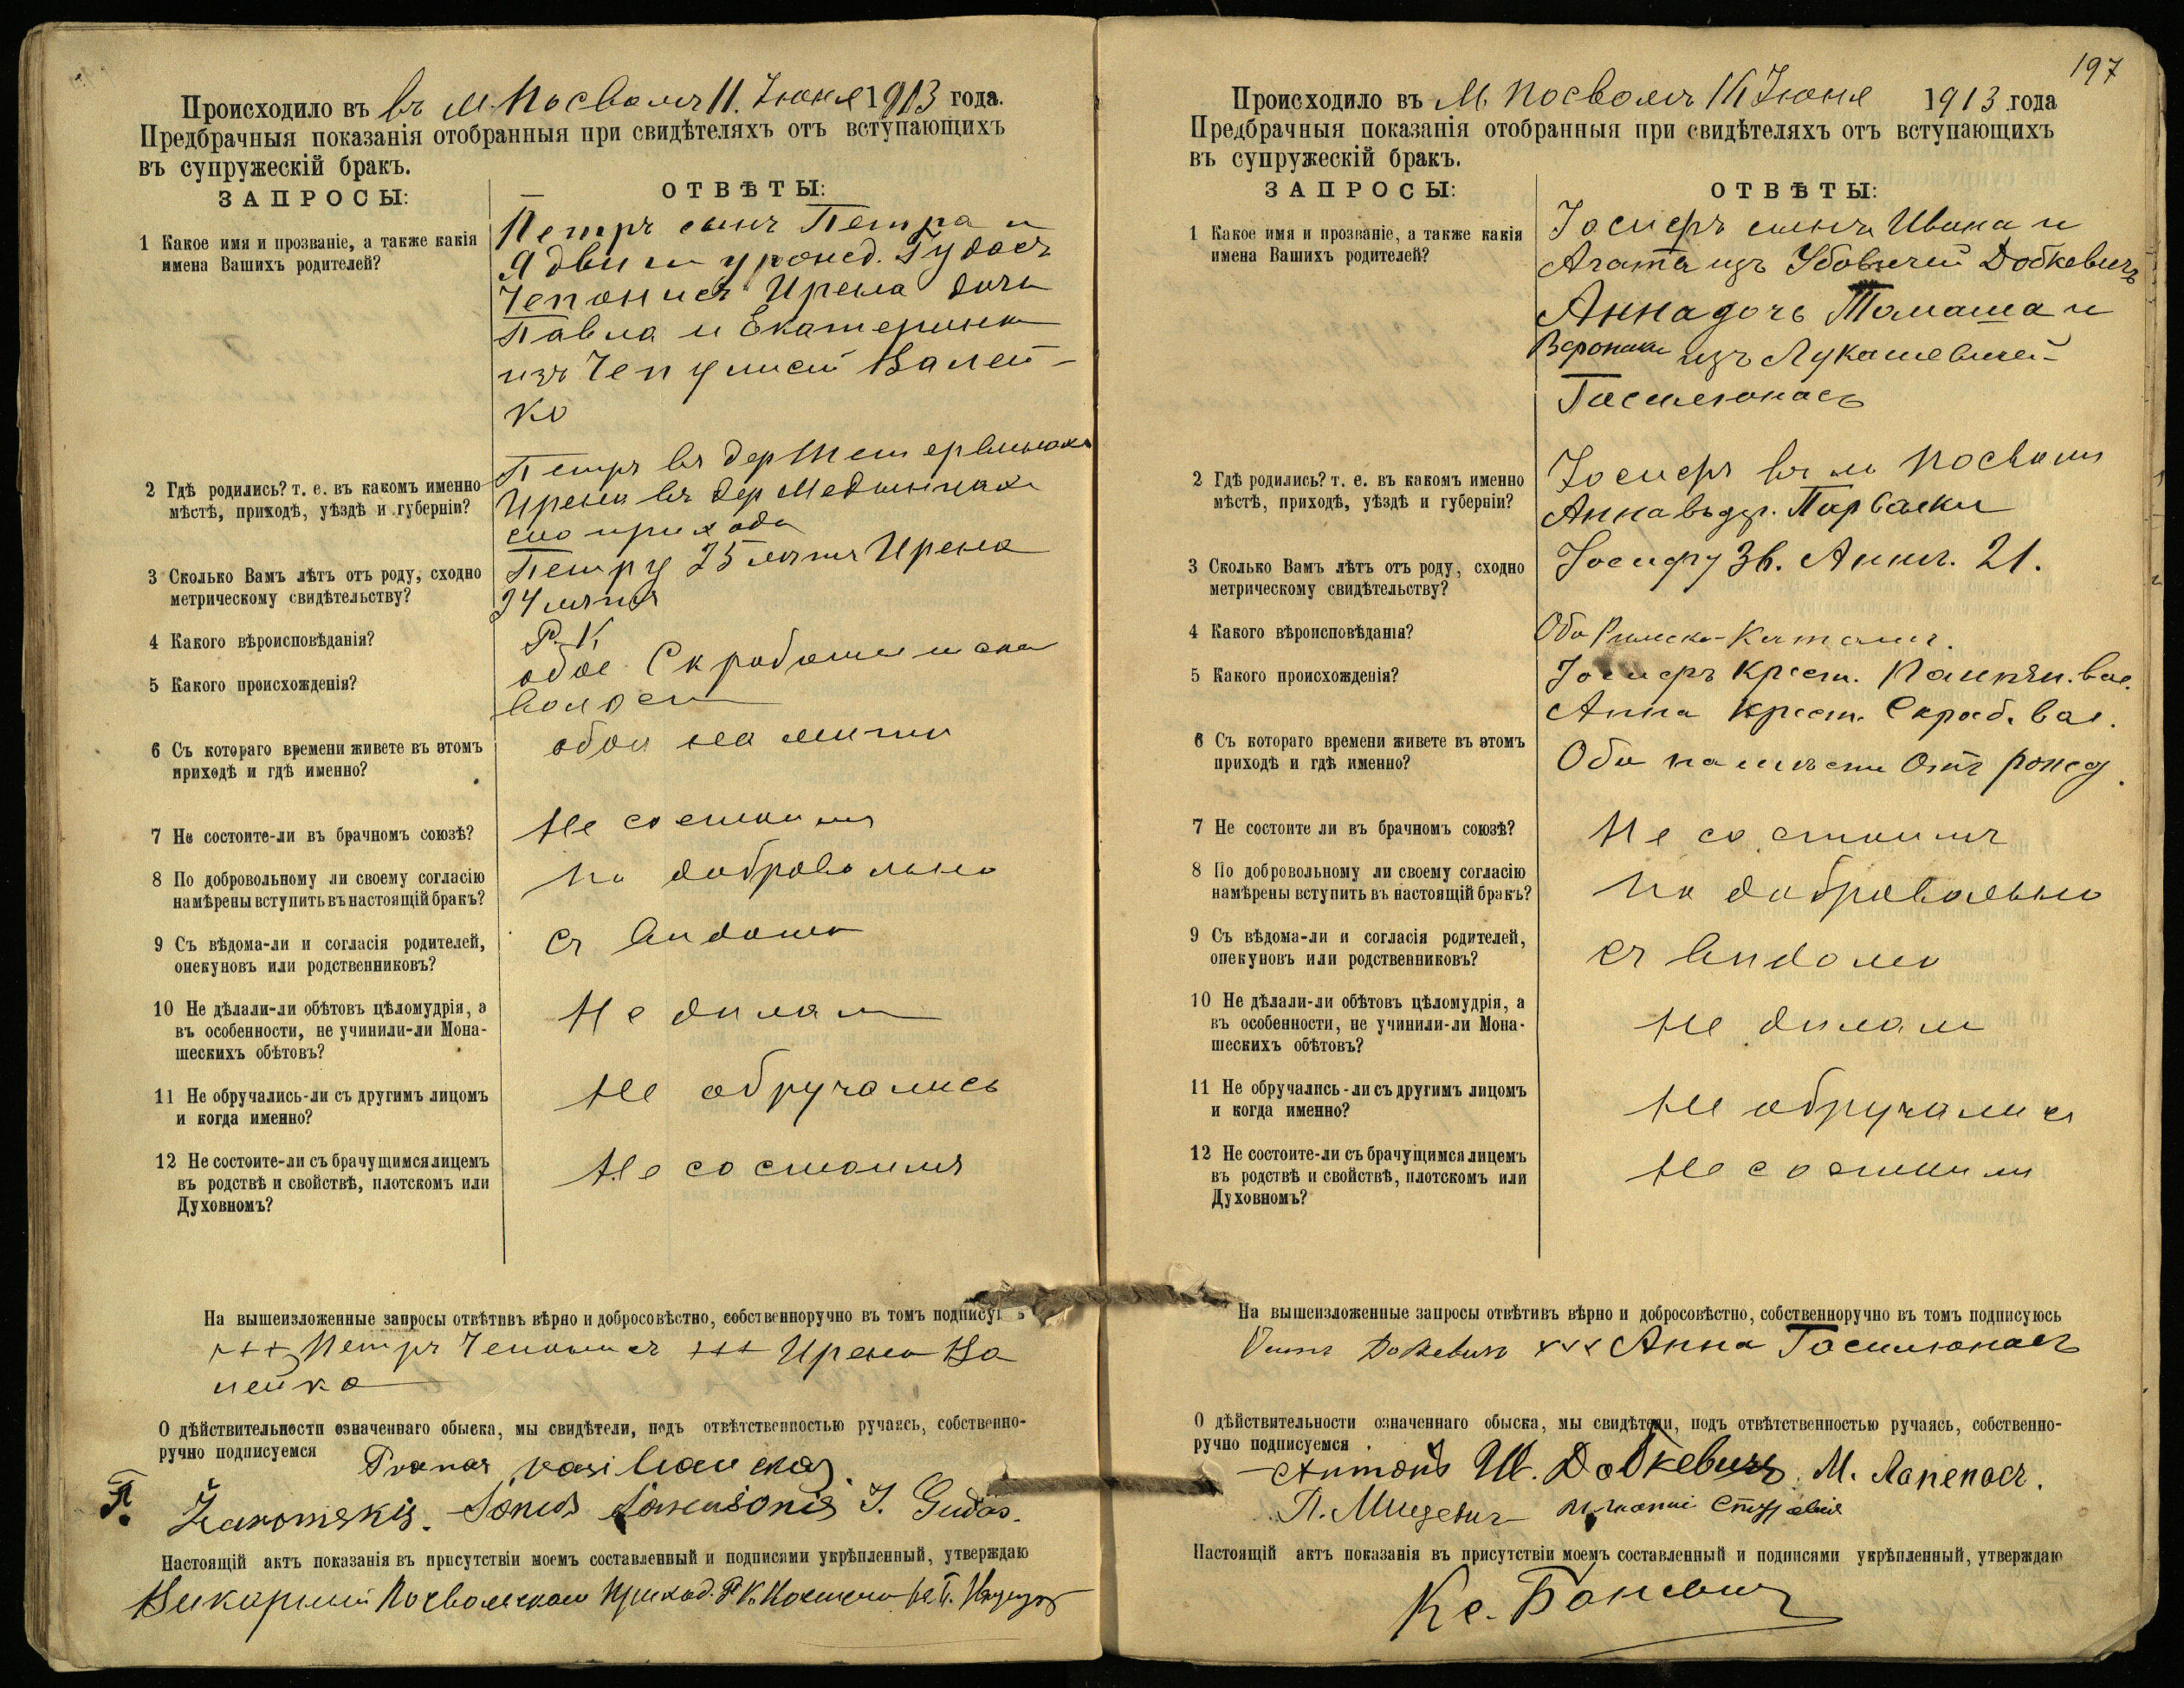 Происходило въ въ м. Посволь 11. Іюня 1913 года.
Предбрачныя показанія отобранныя при свидѣтеляхъ отъ вступающихъ
въ супружескій бракъ.
ЗАПРОСЫ:
ОТВѢТЫ:
1 Какое имя и прозваніе, а также какія
имена Вашихъ родителей?
Петръ сынъ Петра и
Ядвиги урожд. Гудасъ
Чепонисъ Ирена дочь
Павла и Екатерины
изъ Валей-
ко
2 Гдѣ родились? т. е. въ какомъ именно
мѣстѣ, приходѣ, уѣздѣ и губерніи?
Петръ въ дер
Ирена въ дер
прихода
3 Сколько Вамъ лѣтъ отъ роду, сходно
метрическому свидѣтельству?
Петру 25 лѣтъ Ирена
24 лѣтъ
4 Какого вѣроисповѣданія?
Р. К
5 Какого происхожденія?
обое
волости
6 Съ котораго времени живете въ этомъ
приходѣ и гдѣ именно?
7 Не состоите-ли въ брачномъ союзѣ?
Не состоимъ
8 По добровольному ли своему согласію
намѣрены вступить въ настоящій бракъ?
по добровольно
9 Съ вѣдома-ли и согласія родителей,
опекуновъ или родственниковъ?
съ видома
10 Не дѣлали-ли обѣтовъ цѣломудрія, а
въ особенности, не учинили-ли Мона-
шескихъ обѣтовъ?
Не дилали
11 Не обручались-ли съ другимъ лицомъ
и когда именно?
Не обручались
12 Не состоите-ли съ брачущимся лицемъ
въ родствѣ и свойствѣ, плотскомъ или
Духовномъ?
Не состоимъ
На вышеизложенные запросы отвѣтивъ вѣрно и добросовѣстно, собственноручно въ томъ подпису
+++ Петръ Чепонисъ +++ Ирена Ва
лейко
О дѣйствительности означеннаго обыска, мы свидѣтели, подъ отвѣтственностью ручаясь, собственно-
ручно подписуемся
Žaromskis. J. Gudas.
Настоящій актъ показанія въ присутствіи моемъ составленный и подписями укрѣпленный, утверждаю
Викарный Посвольскаго Приход. Р К.
197
Происходило въ М. Посволь 16 Іюня 1913 года
Предбрачныя показанія отобранныя при свидѣтеляхъ отъ вступающихъ
въ супружескій бракъ.
ЗАПРОСЫ:
ОТВѢТЫ:
1 Какое имя и прозваніе, а также какія
имена Вашихъ родителей?
Іосифъ сынъ Ивана и
Агата изъ Добкевичъ
Анна дочь Томаша и
Вероники изъ Лукашевичей
Гасилюнасъ
2 Гдѣ родились? т. е. въ какомъ именно
мѣстѣ, приходѣ, уѣздѣ и губерніи?
Іосифъ въ м Посволи
Анна въ дер.
3 Сколько Вамъ лѣтъ отъ роду, сходно
метрическому свидѣтельству?
Іосифу 36. Аннѣ. 21.
4 Какого вѣроисповѣданія?
Оба Римско-Катол.
5 Какого происхожденія?
Іосифъ Крест. вол.
Анна крест. Скроб. вол.
6 Съ котораго времени живете въ этомъ
приходѣ и гдѣ именно?
Оба на мѣстѣ отъ рожд.
7 Не состоите ли въ брачномъ союзѣ?
Не состоимъ
8 По добровольному ли своему согласію
намѣрены вступить въ настоящій бракъ?
по добровольно
9 Съ вѣдома-ли и согласія родителей,
опекуновъ или родственниковъ?
съ видома
10 Не дѣлали-ли обѣтовъ цѣломудрія, а
въ особенности, не учинили-ли Мона-
шескихъ обѣтовъ?
Не дилали
11 Не обручались-ли съ другимъ лицомъ
и когда именно?
Не обручались
12 Не состоите-ли съ брачущимся лицемъ
въ родствѣ и свойствѣ, плотскомъ или
Духовномъ?
Не состоимъ
На вышеизложенные запросы отвѣтивъ вѣрно и добросовѣстно, собственноручно въ томъ подписуюсь
xxx Анна Гасилюнасъ
О дѣйствительности означеннаго обыска, мы свидѣтели, подъ отвѣтственностью ручаясь, собственно-
ручно подписуемся
Антонъ Добкевичъ. М. Лапенасъ.
П. Мицевичъ
Настоящій актъ показанія въ присутствіи моемъ составленный и подписями укрѣпленный, утверждаю
Кс.